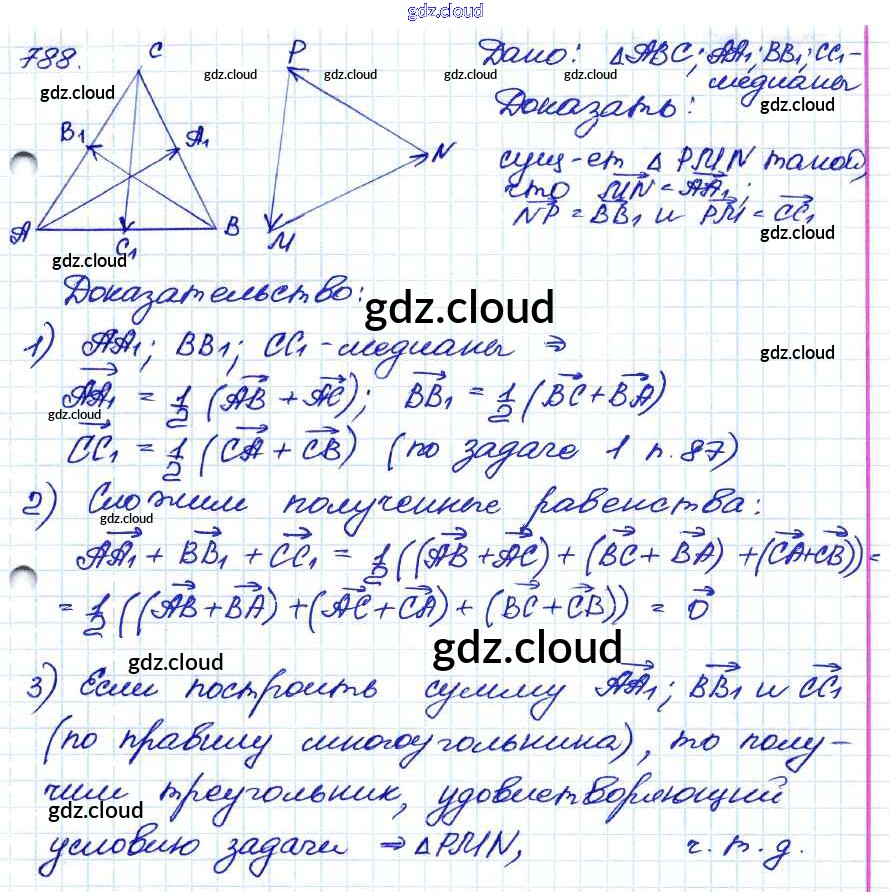 gdz.cloud
788.
C
P
gdz.cloud
gdz.cloud
gdz.cloud
B₁
A₁
N
A
C₁
B
M
gdz.cloud
Дано: △ABC; AA₁; BB₁; CC₁ –
медианы
gdz.cloud
gdz.cloud
Доказать:
сущ-ет △ PMN такой,
что MN⃗ = AA₁⃗;
NP⃗ = BB₁⃗ и PM⃗ = CC₁⃗
gdz.cloud
Доказательство:
gdz.cloud
1) AA₁; BB₁; CC₁ – медианы ⇒
gdz.cloud
AA₁⃗ = 1/2 (AB⃗ + AC⃗); BB₁⃗ = 1/2 (BC⃗ + BA⃗)
gdz.cloud
CC₁⃗ = 1/2 (CA⃗ + CB⃗) (по задаче 1 п. 87)
2) Сложим полученные равенства:
gdz.cloud
AA₁⃗ + BB₁⃗ + CC₁⃗ = 1/2 ((AB⃗ + AC⃗) + (BC⃗ + BA⃗) + (CA⃗ + CB⃗)) =
= 1/2 ((AB⃗ + BA⃗) + (AC⃗ + CA⃗) + (BC⃗ + CB⃗)) = 0⃗
gdz.cloud
gdz.cloud
3) Если построить сумму AA₁⃗; BB₁⃗ и CC₁⃗
(по правилу многоугольника), то полу–
чим треугольник, удовлетворяющий
gdz.cloud
условию задачи ⇒ △PMN, ч. т. д.
gdz.cloud
gdz.cloud